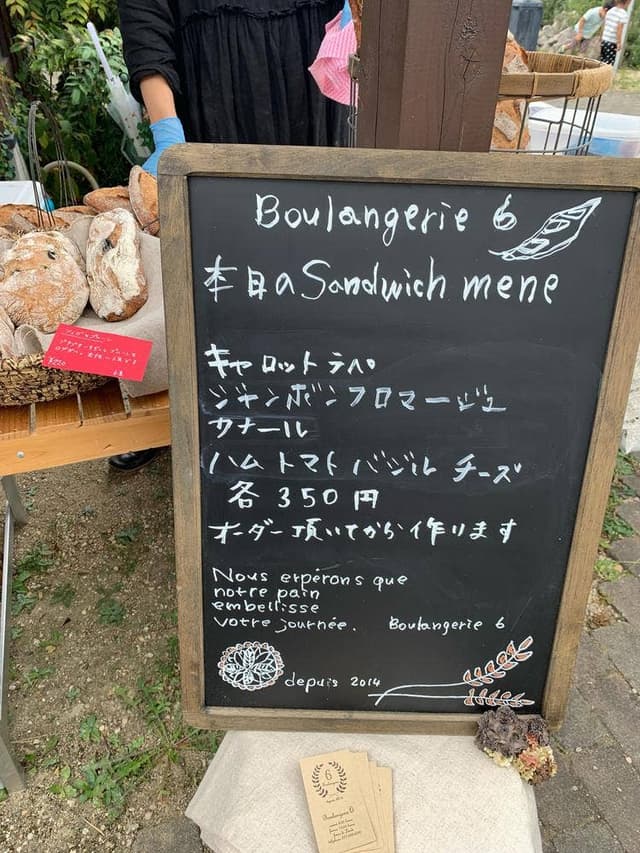 Boulangerie 6
本日のSandwich mene
キャロットラペ
ジャンボンフロマージュ
カナール
ハム トマト バジル チーズ
各 350円
オーダー頂いてから作ります
Nous erpérons que
notre pain
embellisse
votre journée. Boulangerie 6
depuis 2014
¥220
6
Boulangerie
Boulangerie 6